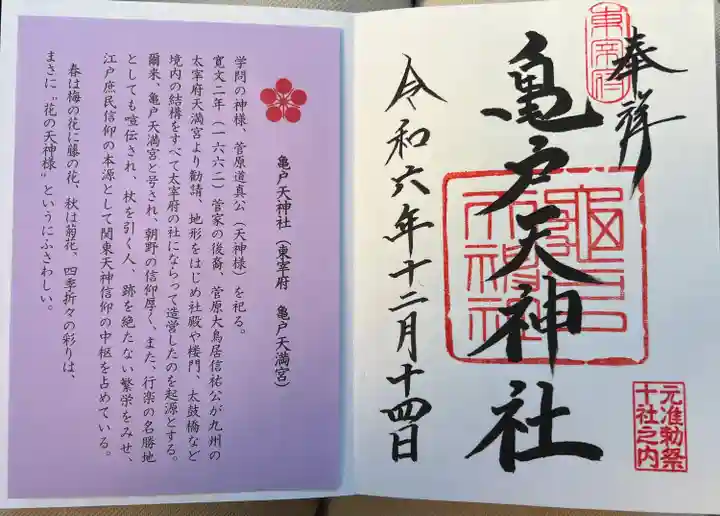 奉拝
東宰府
亀戸天神社
亀戸天神社
令和六年十二月十四日
元准勅祭
十社之内
亀戸天神社(東宰府 亀戸天満宮)
学問の神様、菅原道真公(天神様)を祀る。
寛文二年(一六六二)菅家の後裔、菅原大鳥居信祐公が九州の
太宰府天満宮より勧請、地形をはじめ社殿や楼門、太鼓橋など
境内の結構をすべて太宰府の社にならって造営したのを起源とする。
爾来、亀戸天満宮と号され、朝野の信仰厚く、また、行楽の名勝地
としても喧伝され、杖を引く人、跡を絶たない繁栄をみせ、
江戸庶民信仰の本源として関東天神信仰の中枢を占めている。
春は梅の花に藤の花、秋は菊花、四季折々の彩りは、
まさに"花の天神様"というにふさわしい。